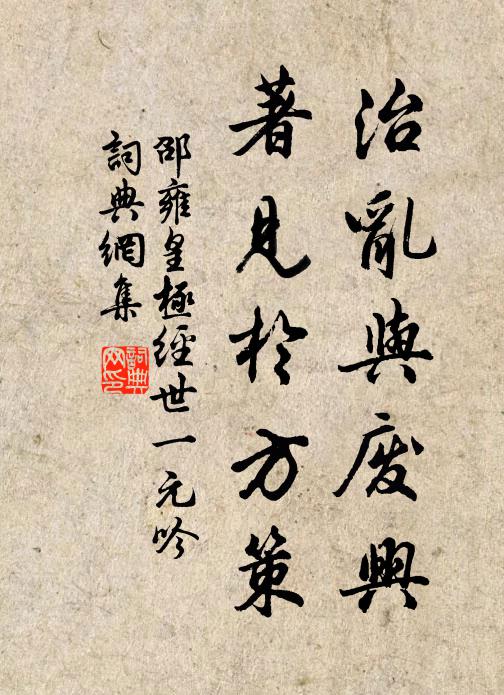 治亂與废興
著見於方策
邵雍皇極經世一元吟
詞典網集
詞典网印